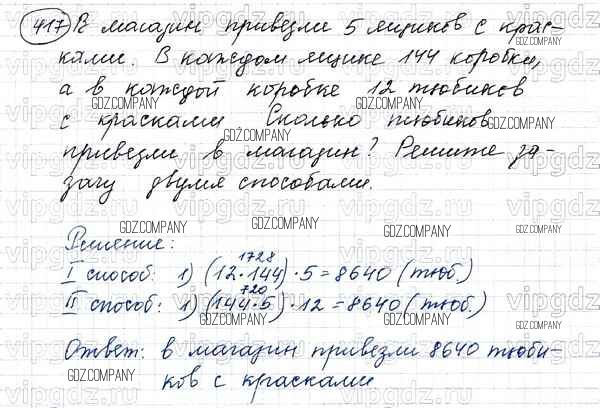 417 В магазин привезли 5 ящиков с крас-
ками. В каждом ящике 144 коробки,
а в каждой коробке 12 тюбиков
с красками Сколько тюбиков
привезли в магазин? Решите за-
дачу двумя способами.
Решение:
1728
I способ: 1) (12·144)·5=8640 (тюб.)
720
II способ: 1) (144·5)·12=8640 (тюб.)
Ответ: в магазин привезли 8640 тюби-
ков с красками
vipgdz
GDZ.COMPANY